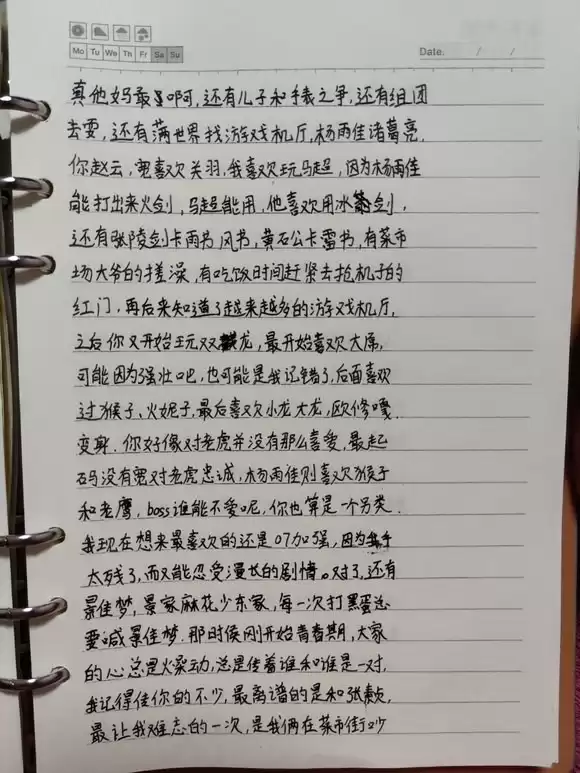 Mo Tu We Th Fr Sa Su
Date. / /
真他妈敢■啊,还有儿子和手表之争,还有组团
去耍,还有满世界找游戏机厅,杨雨佳诸葛亮,
你赵云,宽喜欢关羽,我喜欢玩马超,因为杨雨佳
能打出来火剑,马超能用,他喜欢用冰剑,
还有张陵剑卡雨书,风书,黄石公卡雷书,有菜市
场大爷的搓澡,有吃饭时间赶紧去抢机子的
红门,再后来知道了越来越多的游戏机厅,
之后你又开始玩双龙,最开始喜欢大屌,
可能因为强壮吧,也可能是我记错了,后面喜欢
过猴子、火妮子,最后喜欢小龙大龙,欧修嘎,
变身,你好像对老虎并没有那么喜爱,最起
码没有宽对老虎忠诚,杨雨佳则喜欢猴子
和老鹰,boss谁能不爱呢,你也算是一个另类.
我现在想来最喜欢的还是07加强,因为
太残了,而又能忍受漫长的剧情。对了,还有
景佳梦,景家麻花少东家,每一次打黑蛋总
要喊景佳梦.那时候刚开始青春期,大家
的心总是火燥动,总是传着谁和谁是一对,
我记得传你的不少,最离谱的是和张,
最让我难忘的一次,是我俩在菜市街吵